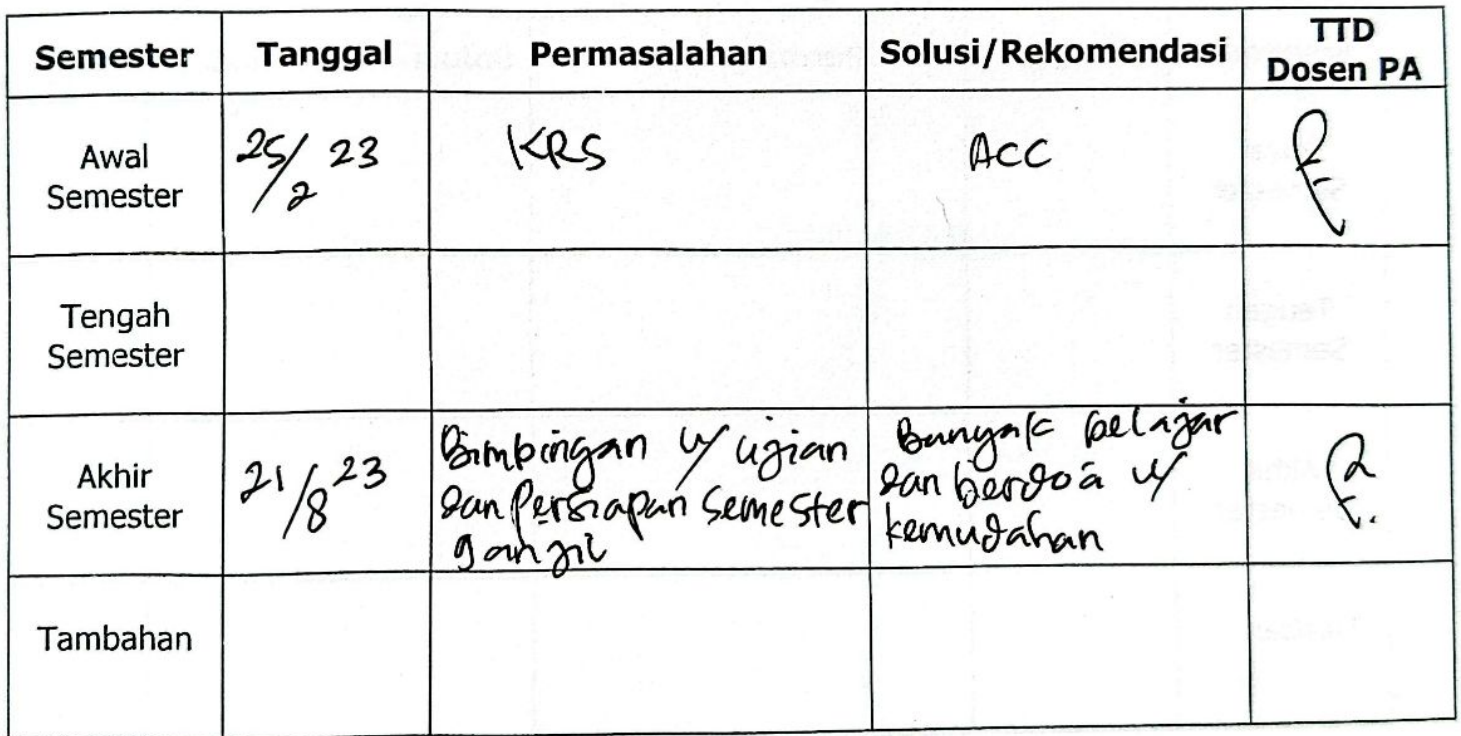 Semester Tanggal Permasalahan Solusi/Rekomendasi TTD
Dosen PA
Awal
Semester
25/2 23
KRS
ACC
Tengah
Semester
Akhir
Semester
21/8 23
Bimbingan u/ ujian
dan Persiapan Semester
ganjil
Banyak belajar
dan berdoa u/
kemudahan
Tambahan